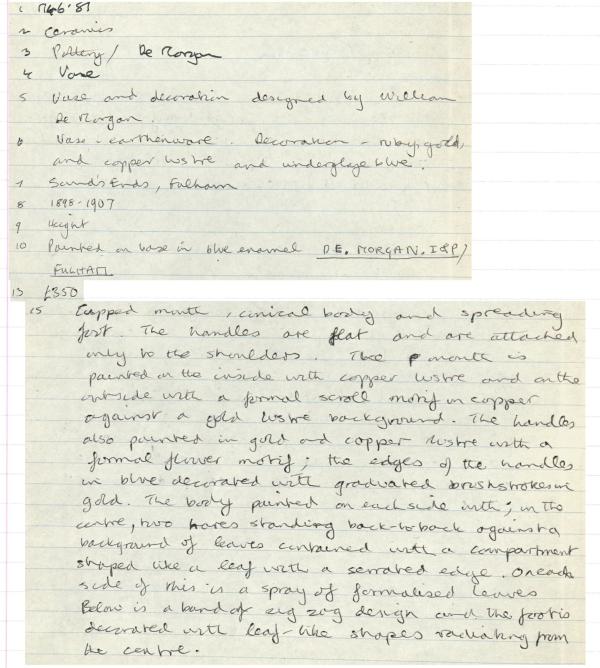 1 M46'81
2 Ceramics
3 Pottery / De Morgan
4 Vase
5 Vase and decoration designed by William
De Morgan.
6 Vase - earthenware. Decoration - ruby, gold,
and copper lustre and underglaze blue.
7 Sand's Ends, Fulham
8 1898-1907
9 Height
10 Painted on base in blue enamel DE. MORGAN. I&P/
FULHAM
13 £350
15 Cupped mouth, conical body and spreading
foot. The handles are flat and are attached
only to the shoulders. The mouth is
painted on the inside with copper lustre and on the
outside with a formal scroll motif in copper
against a gold lustre background. The handles
also painted in gold and copper lustre with a
formal flower motif; the edges of the handles
in blue decorated with graduated brushstrokes in
gold. The body painted on each side with; in the
centre, two hares standing back-to-back against a
background of leaves contained with a compartment
shaped like a leaf with a serrated edge. On each
side of this is a spray of formalised leaves
Below is a band of zig zag design and the foot is
decorated with leaf-like shapes radiating from
the centre.